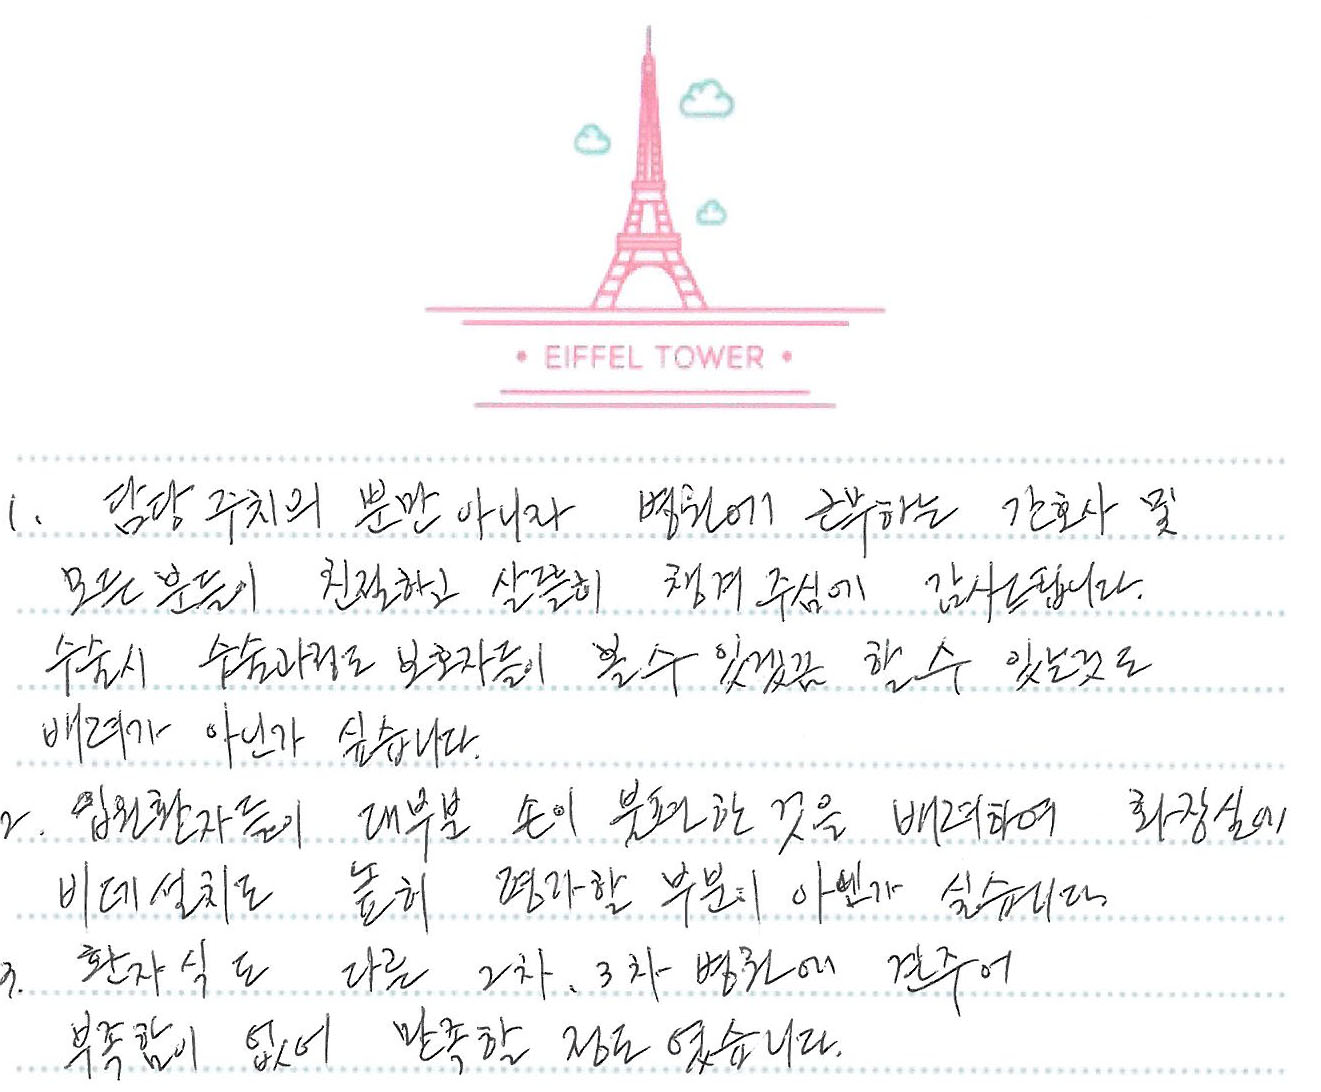 • EIFFEL TOWER •
1. 담당 주치의 뿐만 아니라 병원에 근무하는 간호사 및
모든 분들이 친절하고 살뜰히 챙겨 주심에 감사드립니다.
수술시 수술과정도 보호자들이 볼 수 있겠끔 할 수 있는것도
배려가 아닌가 싶습니다.
2. 입원환자들이 대부분 손이 불편한 것을 배려하여 화장실에
비데설치도 높히 평가할 부분이 아닌가 싶습니다
3. 환자식도 다른 2차, 3차 병원에 견주어
부족함이 없어 만족할 정도 였습니다.